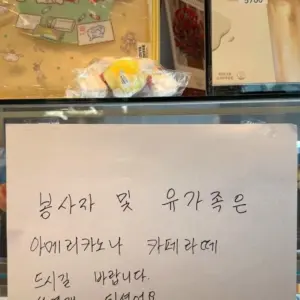 5700
봉사자 및 유가족은
아메리카노나 카페라떼
드시길 바랍니다.